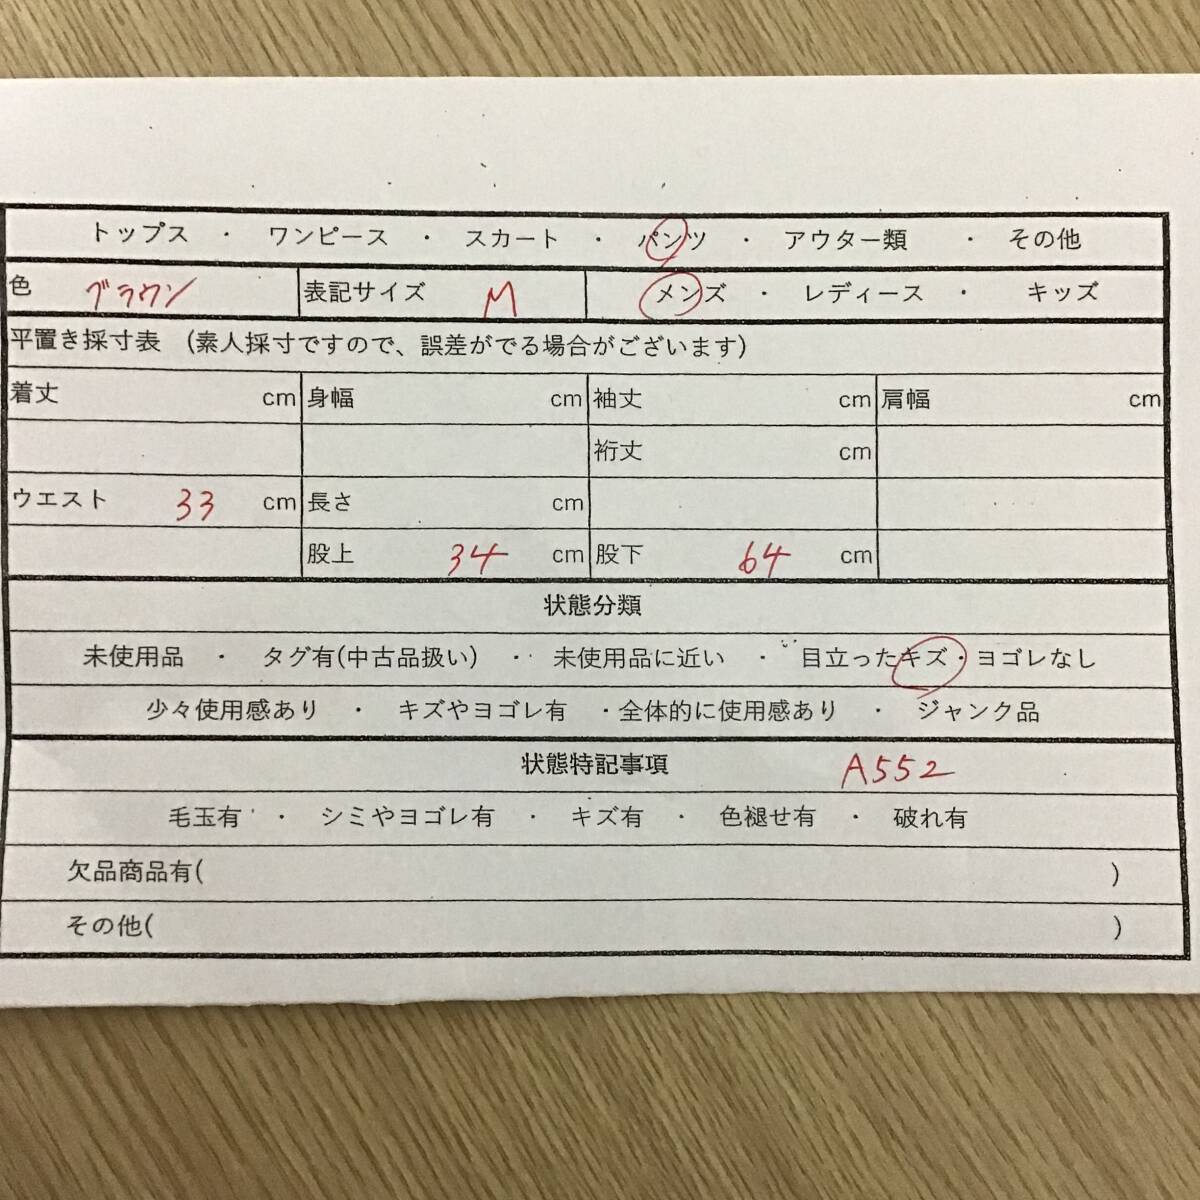 トップス ・ ワンピース ・ スカート ・ パンツ ・ アウター類 ・ その他
色 ブラウン 表記サイズ M メンズ ・ レディース ・ キッズ
平置き採寸表 (素人採寸ですので、誤差がでる場合がございます)
着丈 cm 身幅 cm 袖丈 cm 肩幅 cm
裄丈 cm
ウエスト 33 cm 長さ cm
股上 34 cm 股下 64 cm
状態分類
未使用品 ・ タグ有(中古品扱い) ・ 未使用品に近い ・ 目立ったキズ・ヨゴレなし
少々使用感あり ・ キズやヨゴレ有 ・全体的に使用感あり ・ ジャンク品
状態特記事項 A552
毛玉有 ・ シミやヨゴレ有 ・ キズ有 ・ 色褪せ有 ・ 破れ有
欠品商品有( )
その他( )